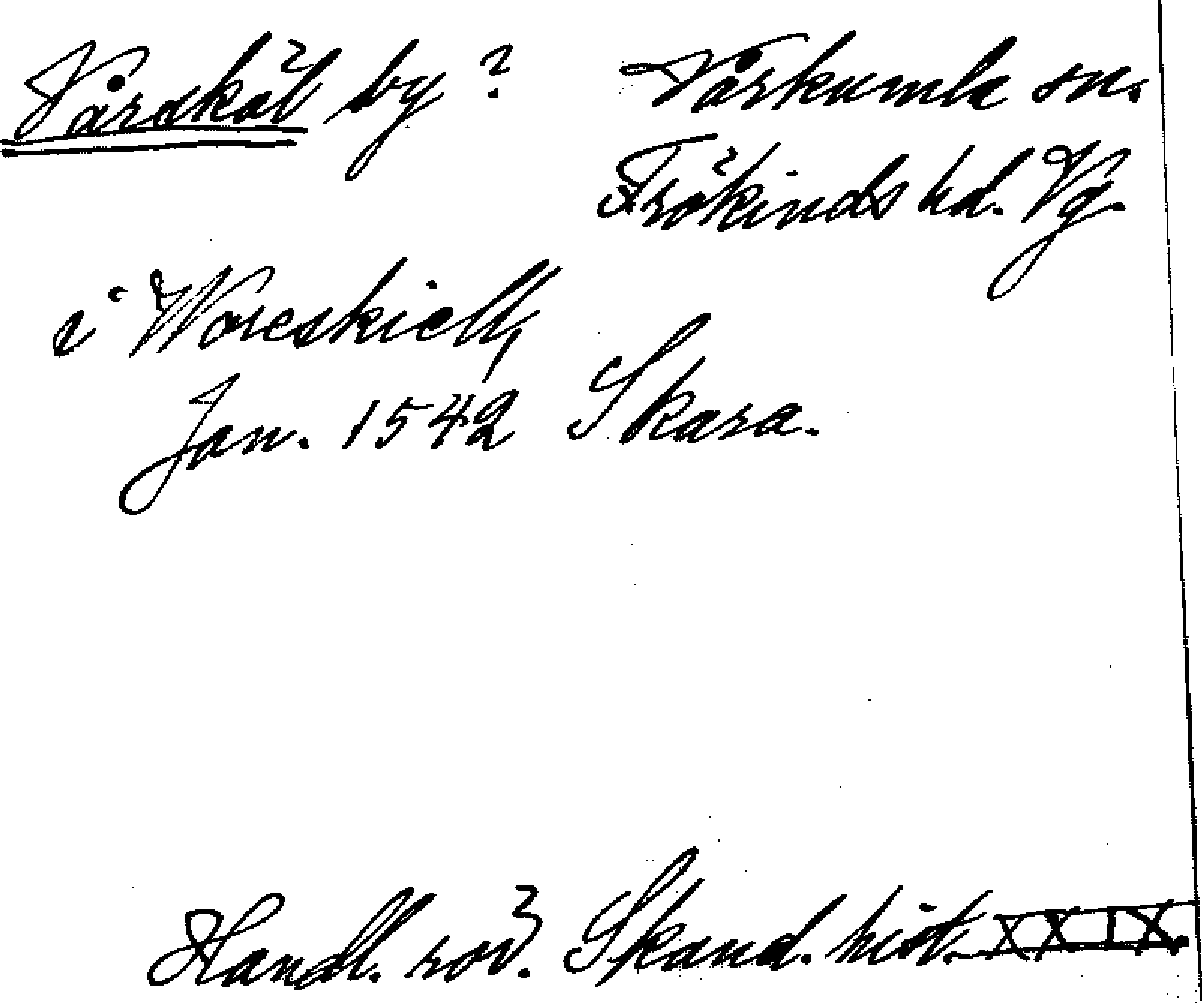 Vårdkäl by? Vårkumla sn.
Frökinds hd. Vg.
i Woreskiell,
Jan. 1542 Skara.
Handl. rör. Skand. hist. XXIX.